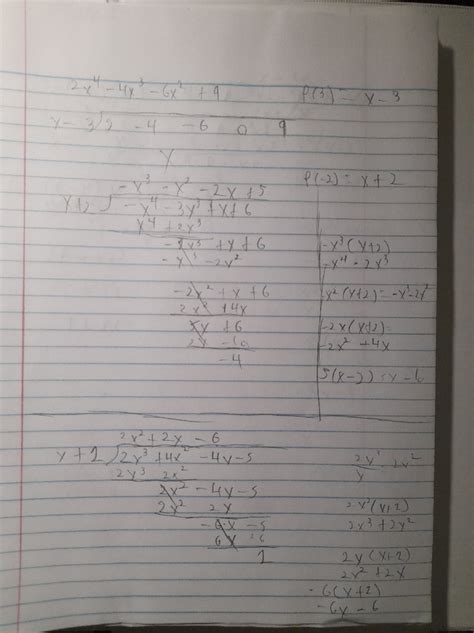 2x⁴ - 4x³ - 6x² + 9
P(3) = x - 3
x - 3 2 -4 -6 0 9
P(-2) = x + 2
-x³ - x² - 2x + 5
x+2 ) -x⁴ - 3x³ + x + 6
x⁴ + 2x³
-x³ + x + 6
-x³ - 2x²
-2x² + x + 6
2x² + 4x
5x + 6
-10
-4
-x³(x+2)
-x⁴ - 2x³
-x²(x+2) = -x³ - 2x²
-2x(x+2) =
-2x² + 4x
2x² + 2x - 6
x + 1 ) 2x³ + 4x² - 4x - 5
2x³ 2x²
2x² - 4x - 5
2x² 2x
-6x - 5
6x + 6
1
2x²(x+2)
2x³ + 2x²
2x(x+2)
2x² + 2x
-6(x+2)
-6x - 6